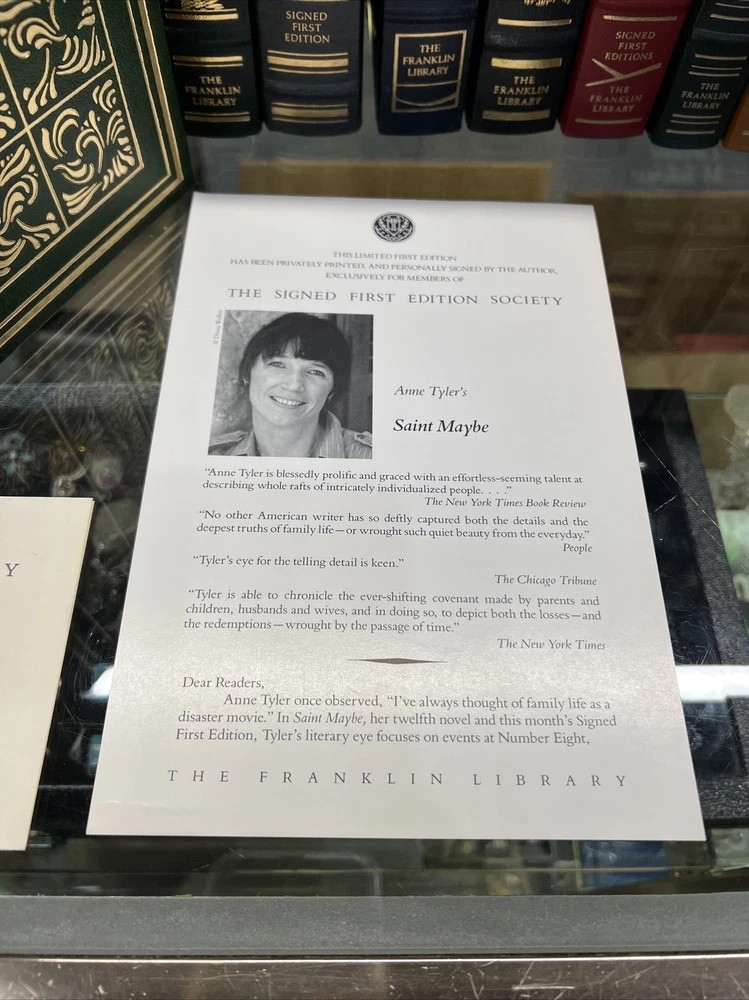 SIGNED
FIRST
EDITION
THE
FRANKLIN
LIBRARY
THE
FRANKLIN
LIBRARY
THE
FRANKLIN
LIBRARY
THE
FRANKLIN
LIBRARY
SIGNED
FIRST
EDITIONS
THE
FRANKLIN
LIBRARY
THE
FRANKLIN
LIBRARY
THIS LIMITED FIRST EDITION
HAS BEEN PRIVATELY PRINTED, AND PERSONALLY SIGNED BY THE AUTHOR,
EXCLUSIVELY FOR MEMBERS OF
THE SIGNED FIRST EDITION SOCIETY
Anne Tyler's
Saint Maybe
“Anne Tyler is blessedly prolific and graced with an effortless-seeming talent at
describing whole rafts of intricately individualized people. . . .”
The New York Times Book Review
“No other American writer has so deftly captured both the details and the
deepest truths of family life—or wrought such quiet beauty from the everyday.”
People
“Tyler's eye for the telling detail is keen.”
The Chicago Tribune
“Tyler is able to chronicle the ever-shifting covenant made by parents and
children, husbands and wives, and in doing so, to depict both the losses—and
the redemptions—wrought by the passage of time.”
The New York Times
Dear Readers,
Anne Tyler once observed, “I've always thought of family life as a
disaster movie.” In Saint Maybe, her twelfth novel and this month's Signed
First Edition, Tyler's literary eye focuses on events at Number Eight,
THE FRANKLIN LIBRARY
Y